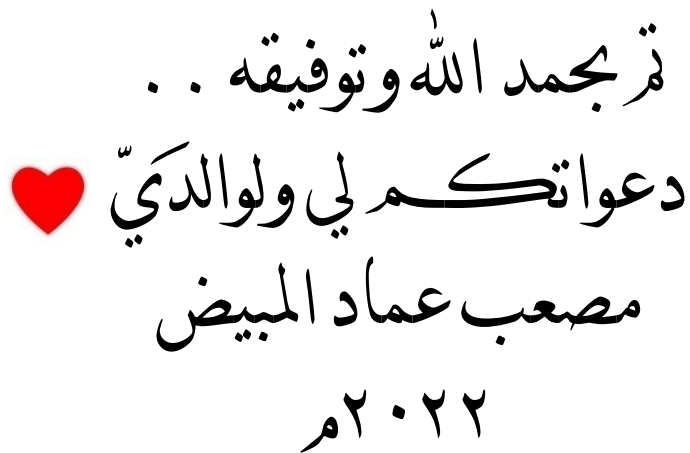 تم بحمد الله وتوفيقه . .
دعواتكم لي ولوالدَيّ
مصعب عماد المبيض
٢٠٢٢م